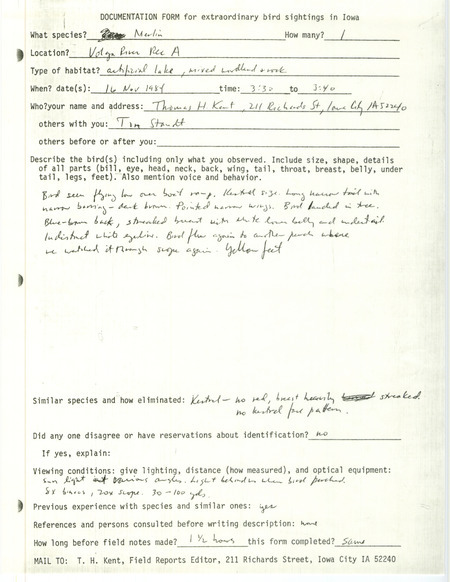 DOCUMENTATION FORM for extraordinary bird sightings in Iowa
What species? Merlin How many? 1
Location? Volga River Rec A
Type of habitat? artificial lake, mixed woodland
When? date(s): 16 Nov 1984 time: 3:30 to 3:40
Who?your name and address: Thomas H Kent, 211 Richards St, Iowa City, IA 52240
others with you: Tim Staudt
others before or after you:
Describe the bird(s) including only what you observed. Include size, shape, details
of all parts (bill, eye, head, neck, back, wing, tail, throat, breast, belly, under
tail, legs, feet). Also mention voice and behavior.
Bird seen flying low over boat ramp. Kestrel size. Long narrow tail with
narrow barring - dark brown. Pointed narrow wings. Bird landed in tree.
Blue-brown back, streaked breast with white lower belly and undertail
Indistinct white eyeline. Bird flew again to another perch where
we watched it through scope again. Yellow feet
Similar species and how eliminated: Kestrel - no red, breast heavily streaked
no kestrel face pattern.
Did any one disagree or have reservations about identification? no
If yes, explain:
Viewing conditions: give lighting, distance (how measured), and optical equipment:
sun light at various angles. Light behind us when bird perched.
8x binocs, 20x scope. 30-100 yds.
Previous experience with species and similar ones: yes
References and persons consulted before writing description: none
How long before field notes made? 1 1/2 hours this form completed? same
MAIL TO: T. H. Kent, Field Reports Editor, 211 Richards Street, Iowa City IA 52240